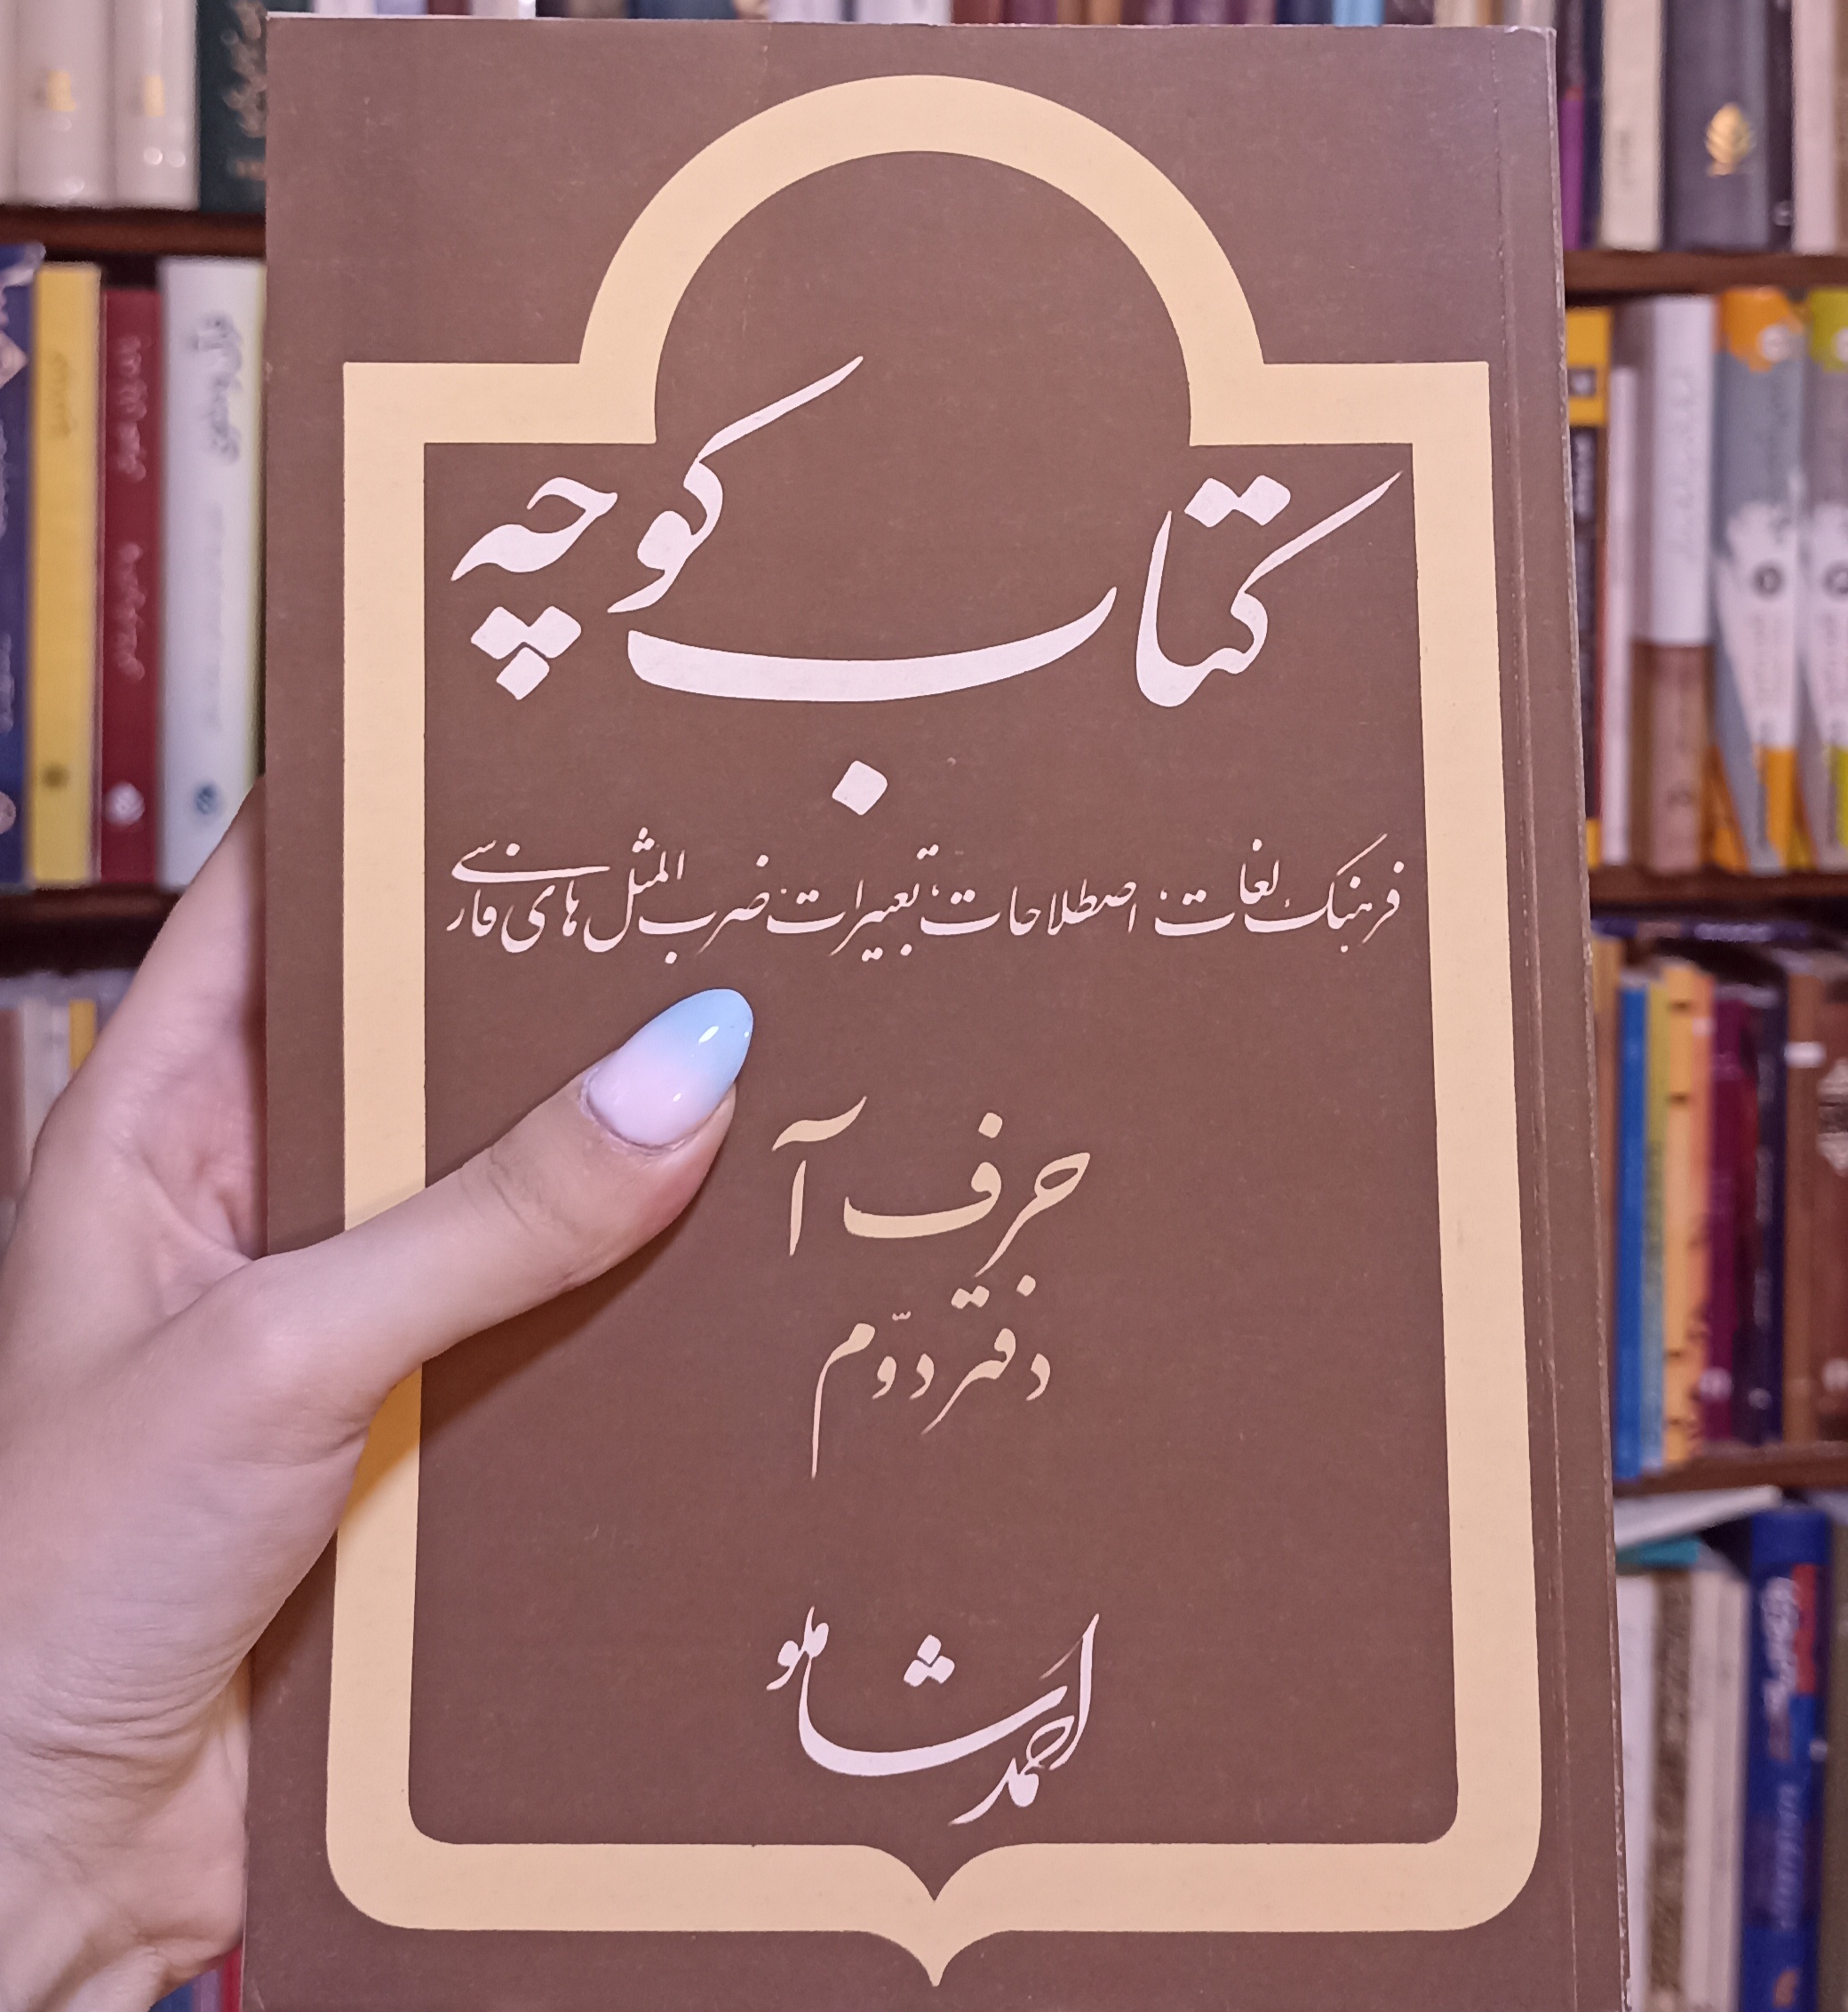 کتاب کوچه
فرهنگ لغات، اصطلاحات، تعبیرات، ضرب‌المثل‌های فارسی
حرف آ
دفتر دوّم
احمد شاملو